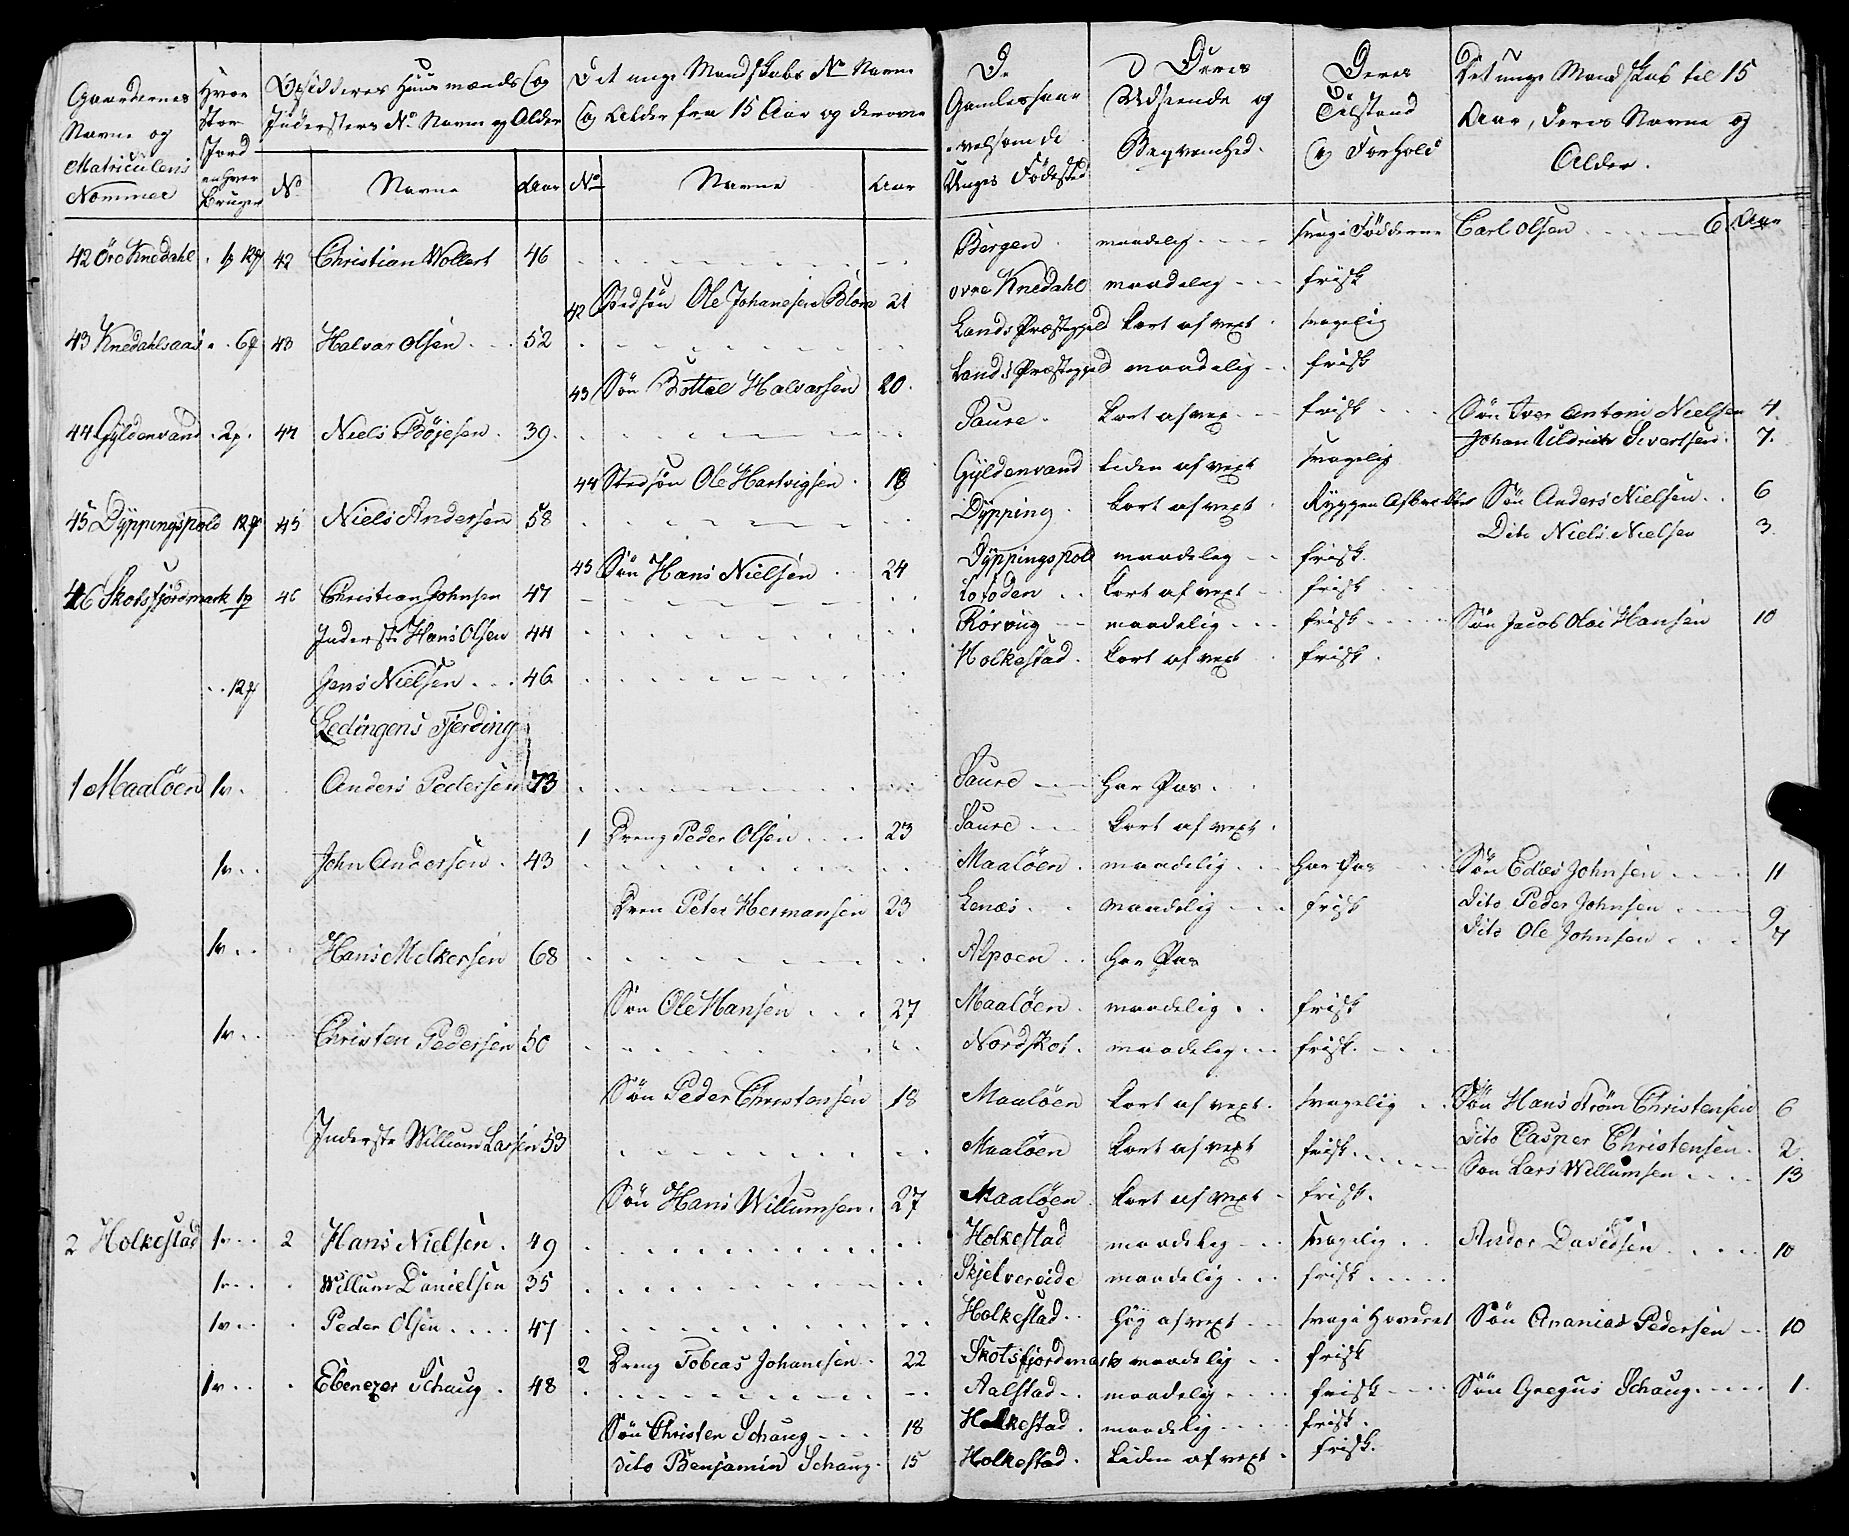 Gaardernes Navne og Matriculens Nommer | Hvor Stor Jord enhver Bruger | Opsidderes Huusmænds og Inderster N° Navne og Alder | Det unge Mandskabs N° Navne og Alder fra 15 Aar og derover | De Gamles saavelsom de Unges Födested | Deres Udseende og Beqvemhed. | Deres Tilstand og Forhold | Det unge Mandskab til 15 Aar, Deres Navne og Alder.
N° | Navne | Aar | N° | Navne | Aar
42 Öre Knedahl | 1p 12 | 42 | Christian Wollert | 46 | Bergen | maadelig | svag i Födderne | Carl Olsen | 6 Aar
42 | Stedsön Ole Johanesen Blom | 21 | övre Knedahl | maadelig | frisk
43 Knedahlsaas | 6 | 43 | Halvor Olsen | 52 | Lands Præstegjeld | kort af vext | svagelig
43 | Sön Bottel Halvorsen | 20 | Lands Præstegjeld | maadelig | frisk
44 Gyldenvand | 2p | 44 | Niels Böjesen | 39 | Saure | kort af vex | frisk | Sön Iver Antoni Nielsen | 4
Johan Uldrich Sivertsen | 7
44 | Stedsön Ole Hartvigsen | 18 | Gyldenvand | liden af vext | svagelig
45 Dyppingspold | 12 | 45 | Niels Andersen | 58 | Dypping | kort af vext | Ryggen | Sön Anders Nielsen | 6
Dito Niels Nielsen | 3
45 | Sön Hans Nielsen | 24 | Dyppingspold | maadelig | frisk
46 Skotsfjordmark | 1p | 46 | Christian Johnsen | 47 | Lofoden | kort af vext | frisk
Inderste Hans Olsen | 44 | Rörviig | maadelig | frisk | Sön Jacob Olai Hansen | 10
12 | Jens Nielsen | 46 | Holkestad | kort af vext | frisk
Ledingens Fjerding
1 Maalöen | 1v | Anders Pedersen | 73 | Saure | har Pas
1 | Dreng Peder Olsen | 23 | Saure | kort af vext
1v | John Andersen | 43 | Maalöen | maadelig | har Pas | Sön Edias Johnsen | 11
Dren Peter Hermansen | 23 | Lenæs | maadelig | frisk | Dito Peder Johnsen | 9
Dito Ole Johnsen | 7
1v | Hans Melkersen | 68 | Alpoen | har Pas
Sön Ole Hansen | 27 | Maalöen | maadelig | frisk
1v | Christen Pedersen | 50 | Nordskot | maadelig | frisk
Sön Peder Christensen | 18 | Maalöen | kort af vext | svagelig | Sön Hans Ström Christensen | 6
Inderste Willum Larsen | 53 | Maalöen | kort af vext | frisk | Dito Casper Christensen | 2
Sön Lars Willumsen | 13
Sön Hans Willumsen | 27 | Maalöen | kort af vext | frisk
2 Holkestad | 1v | 2 | Hans Nielsen | 49 | Holkestad | maadelig | svagelig | Andor Davidsen | 10
1v | Willum Danielsen | 35 | Skjelvereide | maadelig | frisk
1v | Peder Olsen | 47 | Holkestad | höy af vext | svag i Hovedet | Sön Ananias Pedersen | 10
2 | Dreng Tobias Johanesen | 22 | Skotsfjordmark | maadelig | frisk
1v | Ebenezer Schaug | 48 | Aalstad | maadelig | frisk | Sön Gregus Schaug | 1
Sön Christen Schaug | 18 | Holkestad | maadelig | frisk
Dito Benjamin Schaug | 15 | Holkestad | liden af vext | frisk